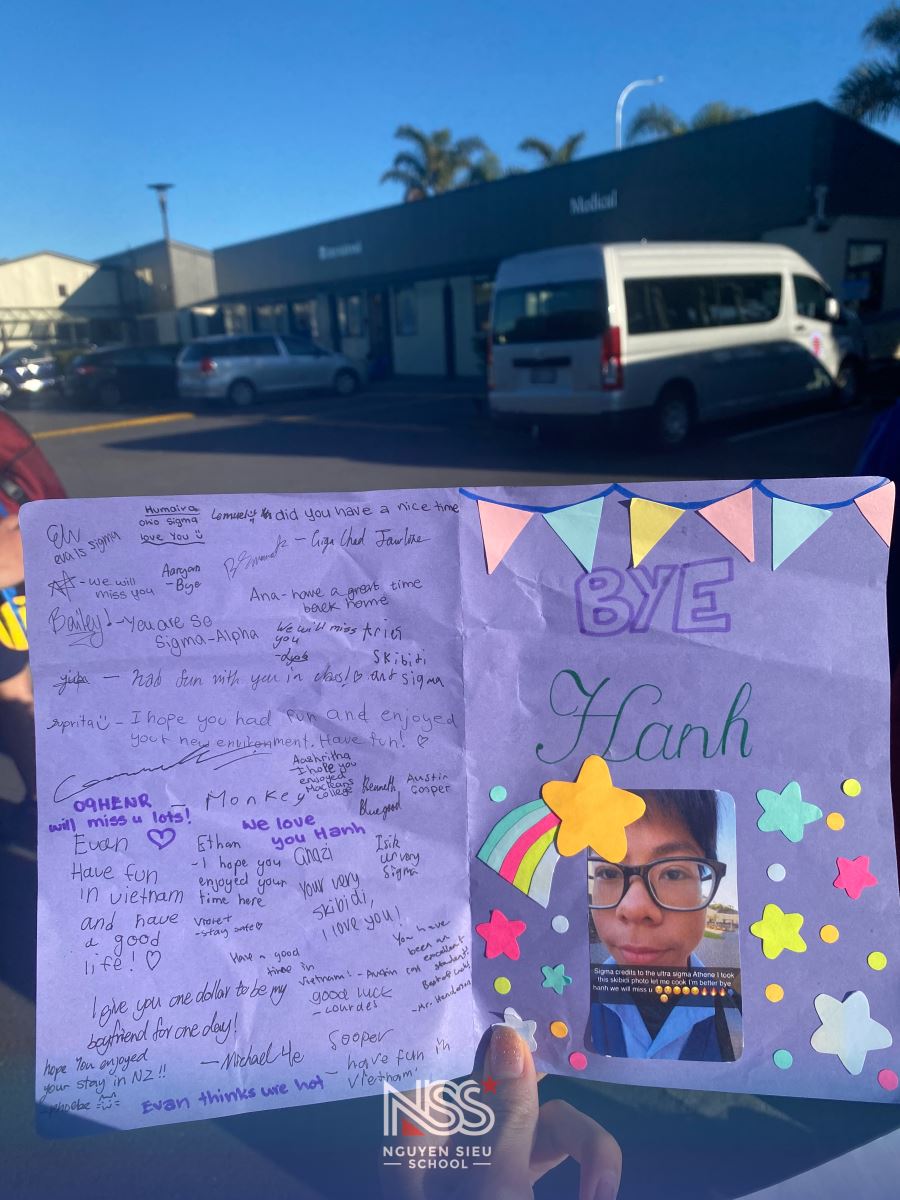 Medical
eva is sigma
Humaira
owo sigma
love You
did you have a nice time
- Giga Chad Jawline
- We will
miss you
Aaryan
- Bye
Ana - have a great time
back home
Bailey! - You are so
Sigma-Alpha
We will miss
you
Aries
Skibidi
and sigma
- had fun with you in class! ♡
Suprita - I hope you had fun and enjoyed
your new environment. Have fun! ♡
Aashritha
I hope you
enjoyed
Macleans
college
- Monkey
Kenneth
Blue good
Austin
Cosper
09HENR
will miss u lots!
we love
you Hanh
Evan ♡
Have fun
in vietnam
and have
a good
life! ♡
Ethan
- I hope you
enjoyed your
time here
Violet
- stay safe ♡
Ghazi
Your very
skibidi,
I love you!
Isik
ur very
Sigma
Have a good
time in
Vietnam! - Austin
good luck
- Lourdes
You have
been an
excellent
student!
Best of luck,
- Mr. Henderson
I give you one dollar to be my
boyfriend for one day!
- Michael Ye
Sooper
- have fun in
Vietnam
hope You enjoyed
your stay in NZ!!
- phoebe
Evan thinks ure hot
BYE
Hanh
Sigma credits to the ultra sigma Athene I took
this skibidi photo let me cook I'm better bye
hanh we will miss u
NSS
NGUYEN SIEU
SCHOOL